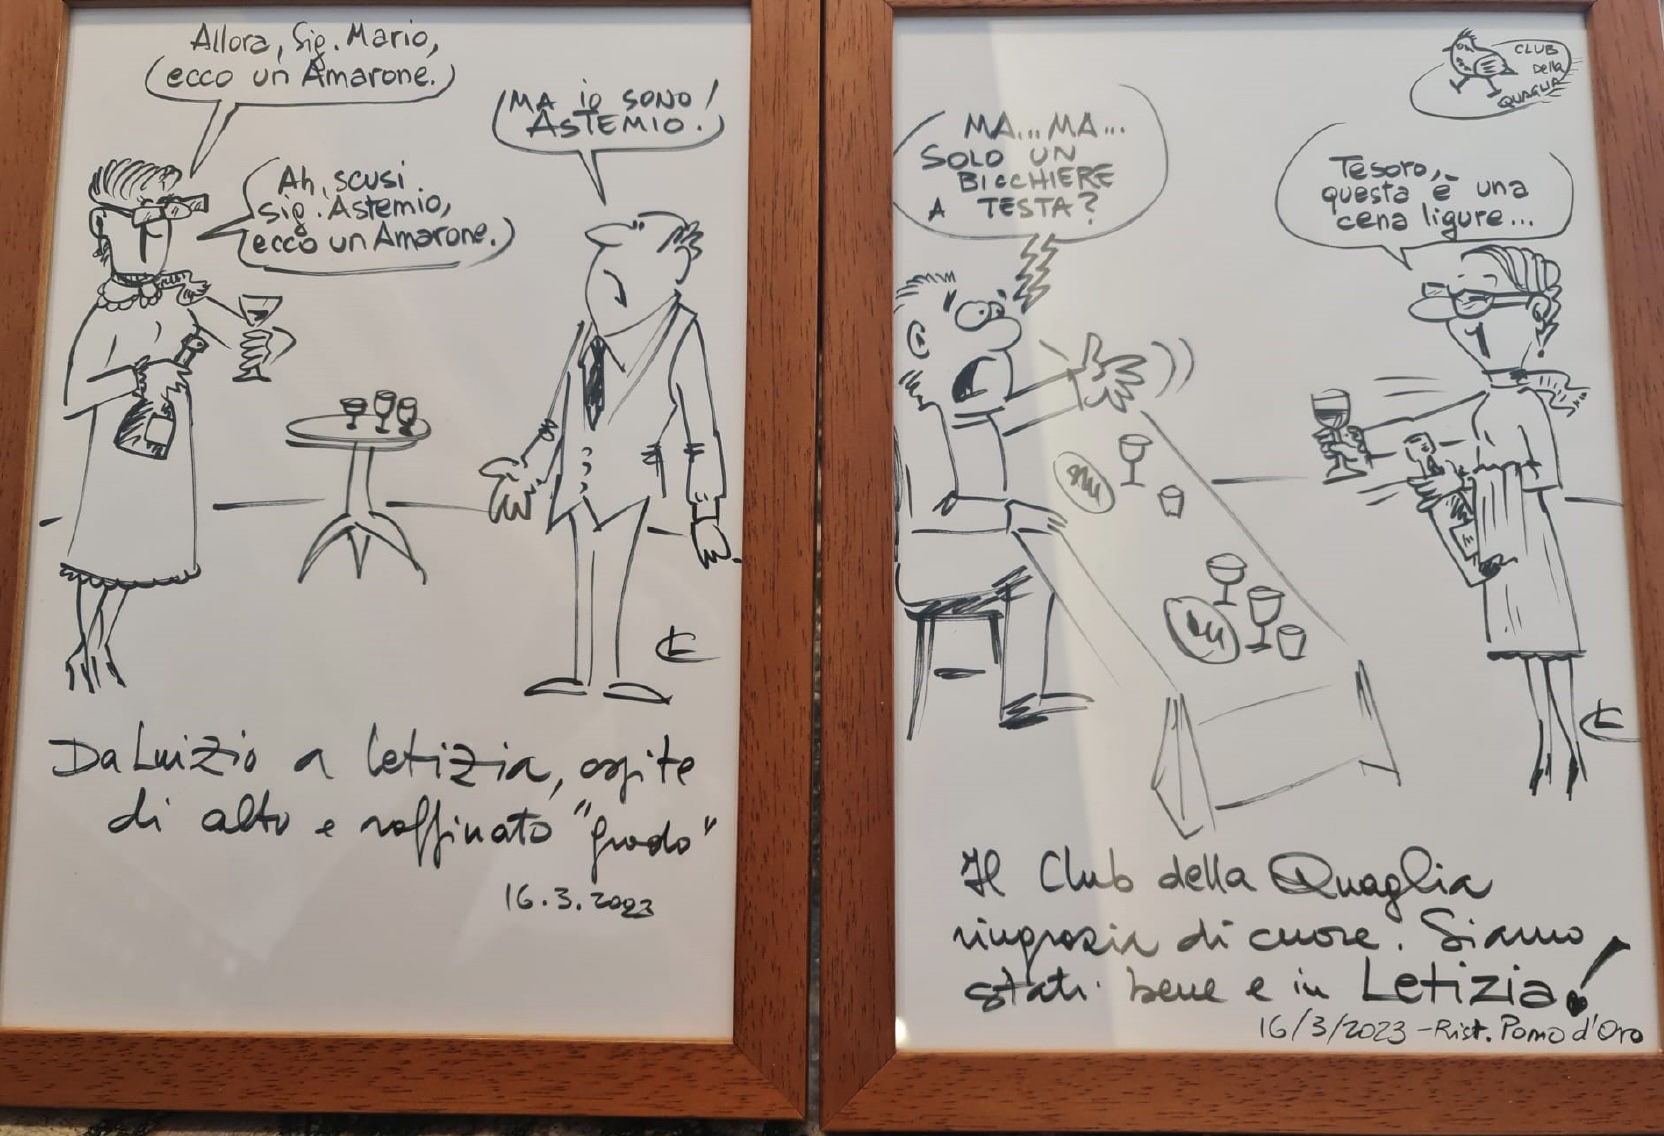 Allora, Sig. Mario,
ecco un Amarone.
MA io SONO
ASTEMIO!
Ah, scusi
sig. Astemio,
ecco un Amarone.
Da Luizio a Letizia, ospite
di alto e raffinato "grado"
16.3.2023
CLUB
Della
QUAGLIA
MA... MA...
SOLO UN
BICCHIERE
A TESTA?
Tesoro,
questa è una
cena ligure...
Il Club della Quaglia
ringrazia di cuore. Siamo
stati bene e in Letizia!
16/3/2023 - Rist. Pomo d'Oro